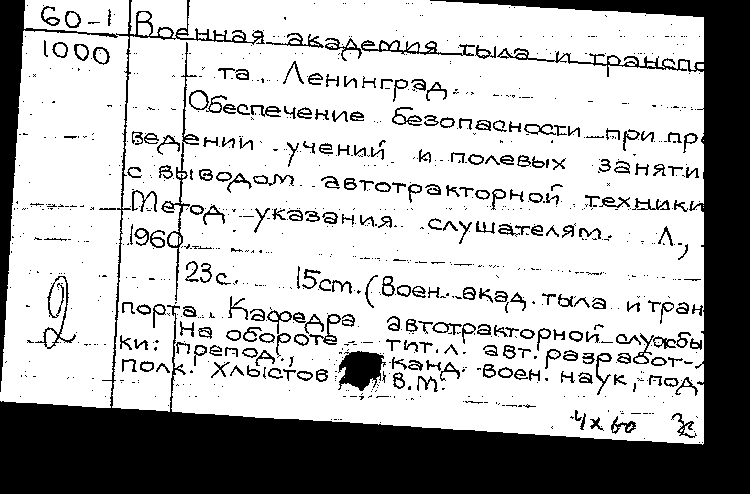 60-1 Военная академия тыла и транспо
1000 та. Ленинград.
Обеспечение безопасности при про
ведении учений и полевых заняти
с выводом автотракторной техники
Метод. указания слушателям. Л.,
1960.
23с. 15cm. (Воен. акад. тыла и тран
порта. Кафедра автотракторной службы
На обороте тит. л. авт. разработ-
ки: препод., канд. воен. наук, под-
полк. Хлыстов В.М.
2
4х60